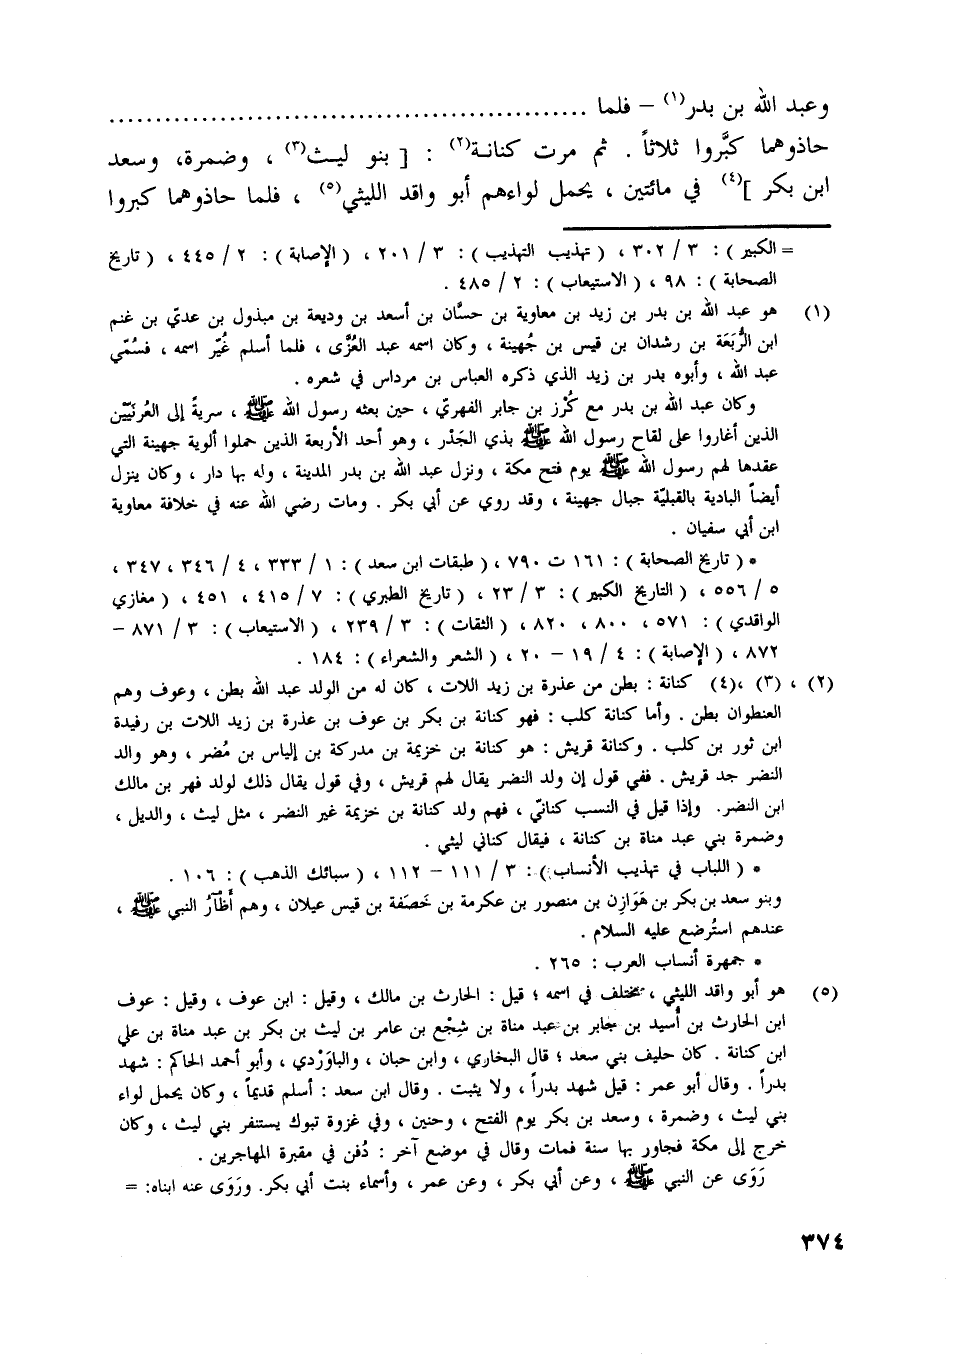 وعبد الله بن بدر(١) – فلما ..................................................
حاذوهما كبَّروا ثلاثاً . ثم مرت كنانـة(٢) : [ بنو ليـث(٣) ، وضمرة، وسعد
ابن بكر ](٤) في مائتين ، يحمل لواءهم أبو واقد الليثي(٥) ، فلما حاذوهما كبروا
= الكبير ) : ٣ / ٣٠٢ ، ( تهذيب التهذيب ) : ٣ / ٢٠١ ، ( الإصابة ) : ٢ / ٤٤٥ ، ( تاريخ
الصحابة ) : ٩٨ ، ( الاستيعاب ) : ٢ / ٤٨٥ .
(١) هو عبد الله بن بدر بن زيد بن معاوية بن حسَّان بن أسعد بن وديعة بن مبذول بن عديّ بن غنم
ابن الرُّبَعَة بن رشدان بن قيس بن جُهينة ، وكان اسمه عبد العُزَّى ، فلما أسلم غُيّر اسمه ، فسُمّي
عبد الله ، وأبوه بدر بن زيد الذي ذكره العباس بن مرداس في شعره .
وكان عبد الله بن بدر مع كُرْز بن جابر الفهريّ ، حين بعثه رسول الله ﷺ ، سريةً إلى العُرنَيّين
الذين أغاروا على لقاح رسول الله ﷺ بذي الجَدْر ، وهو أحد الأربعة الذين حملوا ألوية جهينة التي
عقدها لهم رسول الله ﷺ يوم فتح مكة ، ونزل عبد الله بن بدر المدينة ، وله بها دار ، وكان ينزل
أيضاً البادية بالقبليّة جبال جهينة ، وقد روي عن أبي بكر . ومات رضي الله عنه في خلافة معاوية
ابن أبي سفيان .
* ( تاريخ الصحابة ) : ١٦١ ت ٧٩٠ ، ( طبقات ابن سعد ) : ١ / ٣٣٣ ، ٤ / ٣٤٦ ، ٣٤٧ ،
٥ / ٥٥٦ ، ( التاريخ الكبير ) : ٣ / ٢٣ ، ( تاريخ الطبري ) : ٧ / ٤١٥ ، ٤٥١ ، ( مغازي
الواقدي ) : ٥٧١ ، ٨٠٠ ، ٨٢٠ ، ( الثقات ) : ٣ / ٢٣٩ ، ( الاستيعاب ) : ٣ / ٨٧١ –
٨٧٢ ، ( الإصابة ) : ٤ / ١٩ – ٢٠ ، ( الشعر والشعراء ) : ١٨٤ .
(٢) ، (٣) ،(٤) كنانة : بطن من عذرة بن زيد اللات ، كان له من الولد عبد الله بطن ، وعوف وهم
العنطوان بطن . وأما كنانة كلب : فهو كنانة بن بكر بن عوف بن عذرة بن زيد اللات بن رفيدة
ابن ثور بن كلب . وكنانة قريش : هو كنانة بن خزيمة بن مدركة بن إلياس بن مُضر ، وهو والد
النضر جد قريش . ففي قول إن ولد النضر يقال لهم قريش ، وفي قول يقال ذلك لولد فهر بن مالك
ابن النضر. وإذا قيل في النسب كنانيّ ، فهم ولد كنانة بن خزيمة غير النضر ، مثل ليث ، والديل ،
وضمرة بني عبد مناة بن كنانة ، فيقال كناني ليثي .
* ( اللباب في تهذيب الأنساب ) : ٣ / ١١١ – ١١٢ ، ( سبائك الذهب ) : ١٠٦ .
وبنو سعد بن بكر بن هَوَازِن بن منصور بن عكرمة بن خَصَفة بن قيس عيلان ، وهم أَظْآرُ النبي ﷺ ،
عندهم استُرضع عليه السلام .
* جمهرة أنساب العرب : ٢٦٥ .
(٥) هو أبو واقد الليثي ، يختلف في اسمه ؛ قيل : الحارث بن مالك ، وقيل : ابن عوف ، وقيل : عوف
ابن الحارث بن أُسيد بن جابر بن عبد مناة بن شِجْع بن عامر بن ليث بن بكر بن عبد مناة بن علي
ابن كنانة . كان حليف بني سعد ؛ قال البخاري ، وابن حبان ، والباوَرْدي ، وأبو أحمد الحاكم : شهد
بدراً . وقال أبو عمر : قيل شهد بدراً ، ولا يثبت . وقال ابن سعد : أسلم قديماً ، وكان يحمل لواء
بني ليث ، وضمرة ، وسعد بن بكر يوم الفتح ، وحنين ، وفي غزوة تبوك يستنفر بني ليث ، وكان
خرج إلى مكة فجاور بها سنة فمات وقال في موضع آخر : دُفن في مقبرة المهاجرين .
رَوَى عن النبي ﷺ ، وعن أبي بكر ، وعن عمر ، وأسماء بنت أبي بكر. ورَوَى عنه ابناه: =
٣٧٤